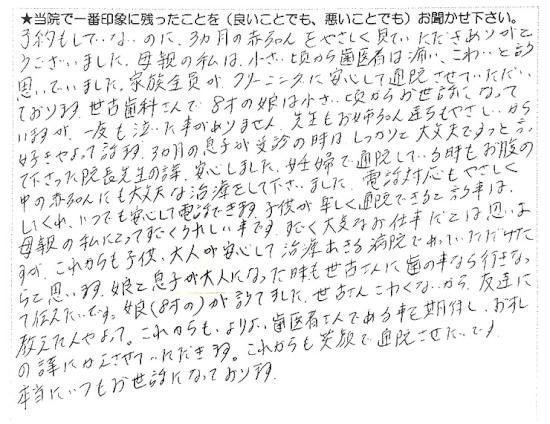 ★当院で一番印象に残ったことを(良いことでも、悪いことでも)お聞かせ下さい。
予約もしていないのに、3ヵ月の赤ちゃんをやさしく見ていただきありがと
うございました。母親の私は、小さい頃から歯医者は痛い、こわいと
思っていました。家族全員が、クリーニングに安心して通院させていただい
ております。世古歯科さんで8才の娘は小さい頃からお世話になって
いますが、一度も泣いた事がありません。先生もお姉さん達もやさしいから
好きやよって話ます。3ヵ月の息子が受診の時は、しっかりと大丈夫ですよっと言っ
て下さった院長先生の話、安心しました。妊婦で通院している時もお腹の
中の赤ちゃんにも大丈夫な治療をして下さいました。電話対応もやさしく
しくれ、いつでも安心して電話できます。子供が楽しく通院できると言う事は、
母親の私にとってすごくうれしい事です。すごく大変なお仕事だとは思いま
すが、これからも子供、大人が安心して治療出きる病院であっていただけた
らと思います。娘と息子が大人になった時も世古さんに歯の事なら行きなっ
て伝えたいです。娘(8才の)が言ってました。世古さんこわくないから、友達に
教えたんやよって。これからも、よりよい歯医者さんである事を期待し、お礼
の話にかえさせていただきます。これからも笑顔で通院させたいです。
本当にいつもお世話になっております。